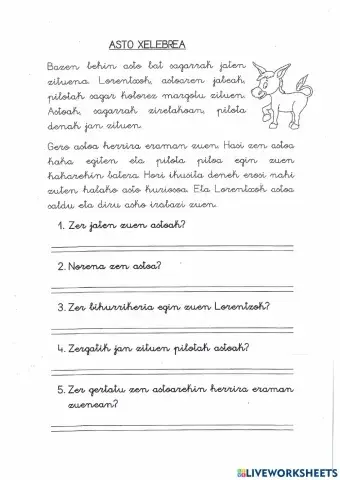 ASTO XELEBREA
Bazen behin asto bat sagarrak jaten
zituena. Lorentxok, astoaren jabeak,
pilotak sagar kolorez margotu zituen.
Astoak, sagarrak zirelakoan, pilota
denak jan zituen.
Gero astoa herrira eraman zuen. Hasi zen astoa
kaka egiten eta pilota piloa egin zuen
kakarekin batera. Hori ikusita denek erosi nahi
zuten halako asto kuriosoa. Eta Lorentxok astoa
saldu eta diru asko irabazi zuen.
1. Zer jaten zuen astoak?
2. Norena zen astoa?
3. Zer bihurrikeria egin zuen Lorentzok?
4. Zergatik jan zituen pilotak astoak?
5. Zer gertatu zen astoarekin herrira eraman
zuenean?
LIVEWORKSHEETS